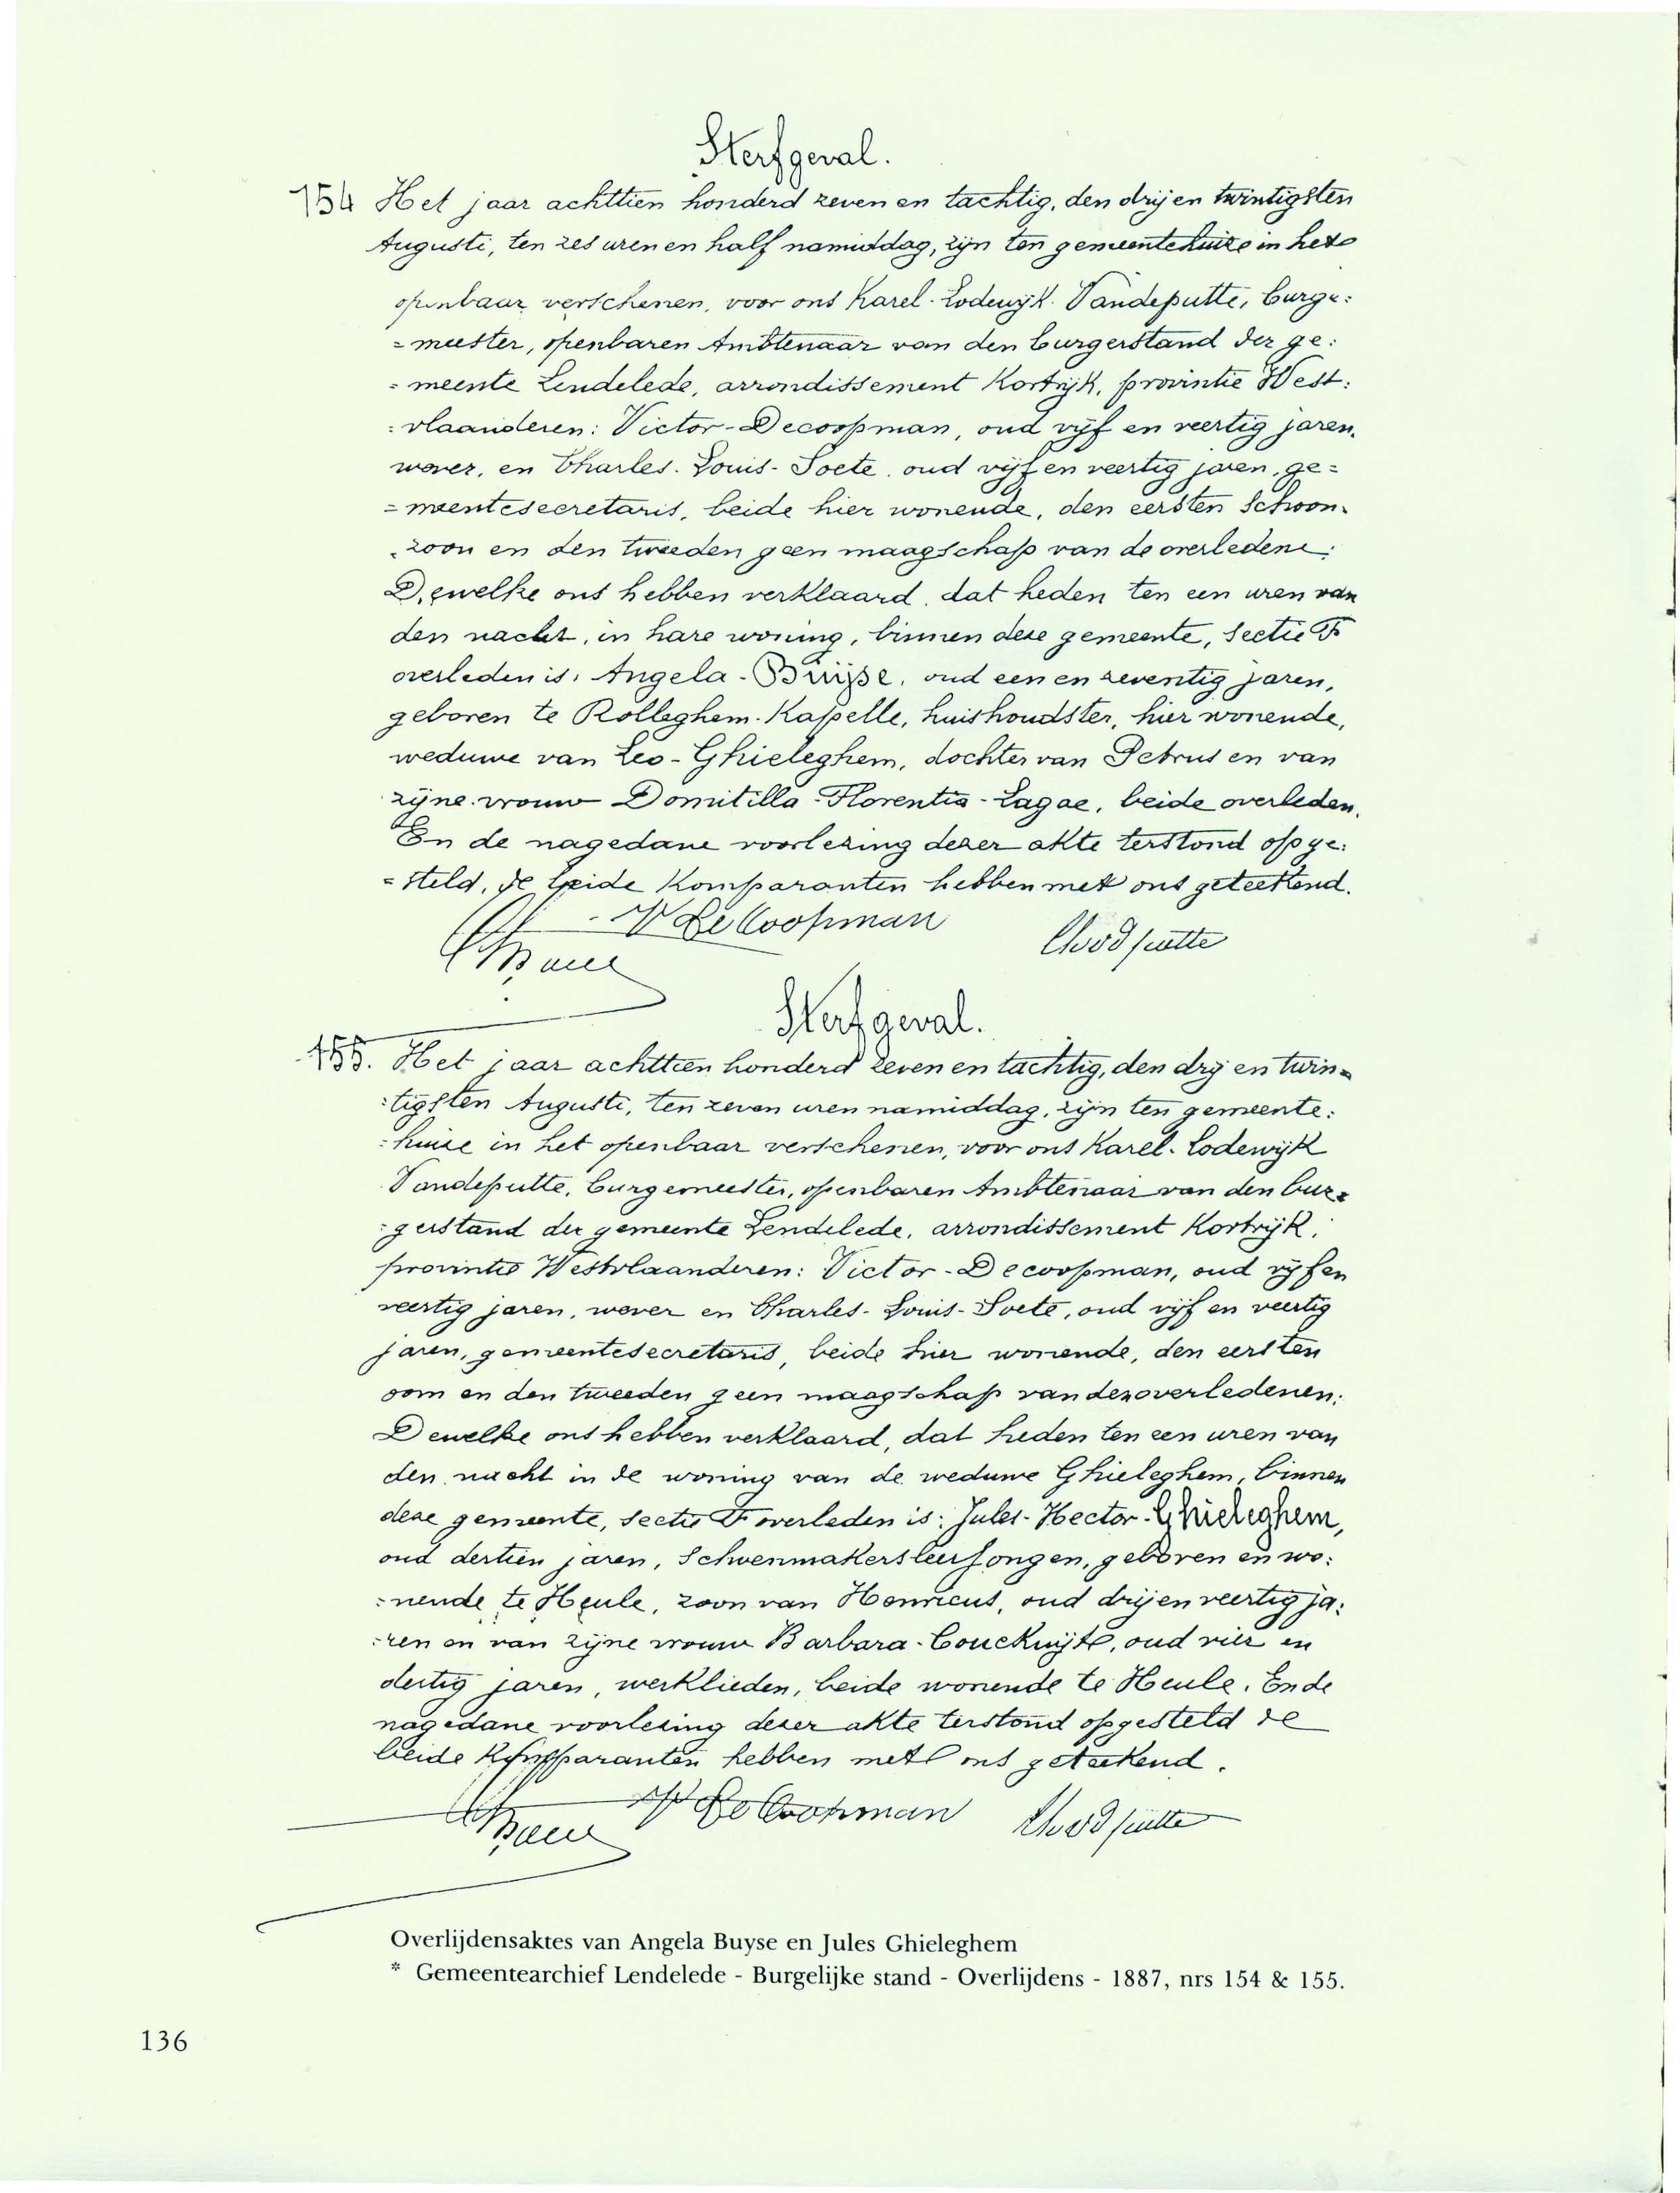 Sterfgeval.
154 Het jaar achttien honderd zeven en tachtig, den drij en twintigsten
Augusti, ten zes uren en half namiddag, zijn ten gemeentehuize in het
openbaar verschenen, voor ons Karel-Lodewijk Vandeputte, burge:
=meester, openbaren Ambtenaar van den burgerstand der ge:
=meente Lendelede, arrondissement Kortrijk, provintie West:
:vlaanderen: Victor-Decoopman, oud vijf en veertig jaren,
wever, en Charles-Louis-Soete, oud vijf en veertig jaren, ge=
=meentesecretaris, beide hier wonende, den eersten schoon-
-zoon en den tweeden geen maagschap van de overledene:
Dewelke ons hebben verklaard, dat heden ten een uren van
den nacht, in hare woning, binnen deze gemeente, sectie F
overleden is, Angela-Buijse, oud een en zeventig jaren,
geboren te Rolleghem-Kapelle, huishoudster, hier wonende,
weduwe van Leo-Ghieleghem, dochter van Petrus en van
zijne vrouw Domitilla-Florentia-Lagae, beide overleden.
En de nagedane voorlezing dezer akte terstond opge:
=steld, de beide komparanten hebben met ons geteekend.
V DeCoopman
Sterfgeval.
155. Het jaar achttien honderd zeven en tachtig, den drij en twin=
:tigsten Augusti, ten zeven uren namiddag, zijn ten gemeente:
:huize in het openbaar verschenen, voor ons Karel-Lodewijk
Vandeputte, burgemeester, openbaren Ambtenaar van den bur=
:gerstand der gemeente Lendelede, arrondissement Kortrijk,
provintie Westvlaanderen: Victor-Decoopman, oud vijf en
veertig jaren, wever en Charles-Louis-Soete, oud vijf en veertig
jaren, gemeentesecretaris, beide hier wonende, den eersten
oom en den tweeden geen maagschap van den overledenen:
Dewelke ons hebben verklaard, dat heden ten een uren van
den nacht in de woning van de weduwe Ghieleghem, binnen
deze gemeente, sectie F overleden is: Jules-Hector-Ghieleghem,
oud dertien jaren, Schoenmakersleerjongen, geboren en wo:
:nende te Heule, zoon van Henricus, oud drij en veertig ja:
:ren en van zijne vrouw Barbara-Couckuijt, oud vier en
dertig jaren, werklieden, beide wonende te Heule. En de
nagedane voorlezing dezer akte terstond opgesteld de
beide Komparanten hebben met ons geteekend.
V DeCoopman
Overlijdensaktes van Angela Buyse en Jules Ghieleghem
* Gemeentearchief Lendelede - Burgelijke stand - Overlijdens - 1887, nrs 154 & 155.
136